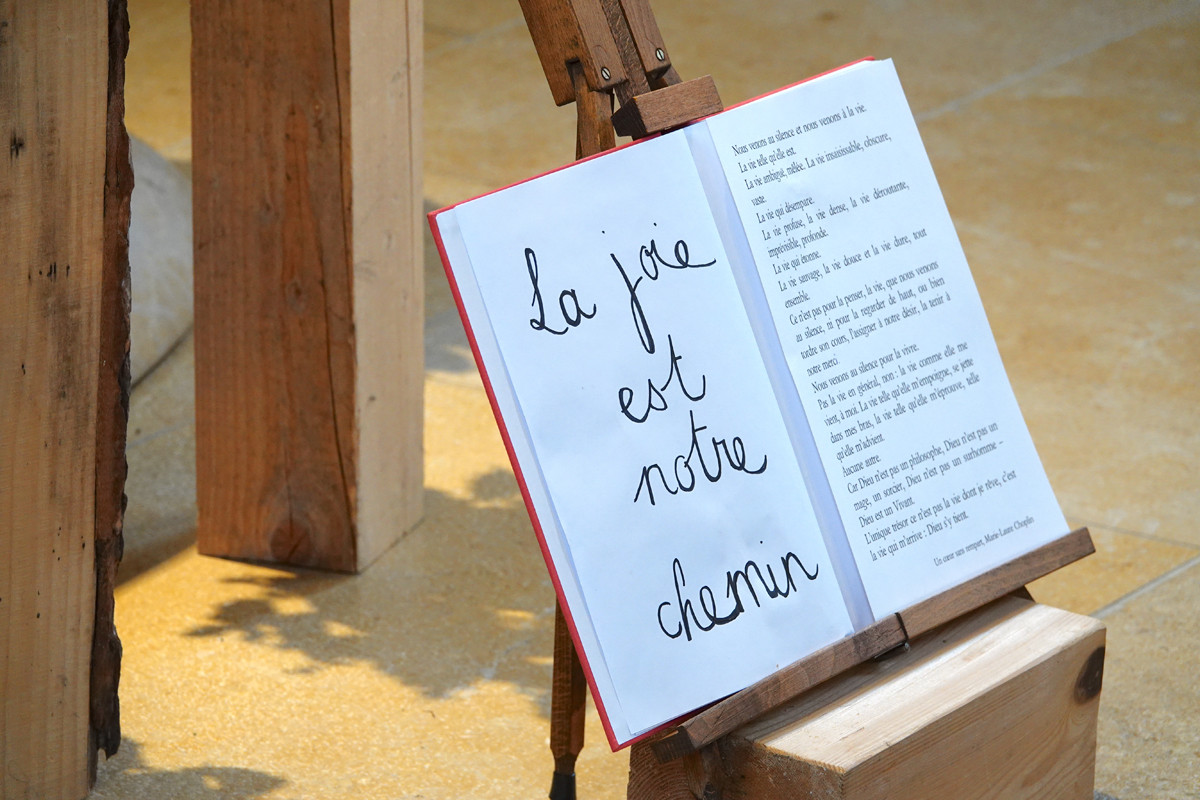 La joie
est
notre
chemin
Nous venons au silence et nous venons à la vie.
La vie telle qu'elle est.
La vie ambiguë, mêlée. La vie insaisissable, obscure,
vaste.
La vie qui désempare.
La vie profuse, la vie dense, la vie déroutante,
imprévisible, profonde.
La vie qui étonne.
La vie sauvage, la vie douce et la vie dure, tout
ensemble.
Ce n'est pas pour la penser, la vie, que nous venons
au silence, ni pour la regarder de haut, ou bien
tordre son cours, l'assigner à notre désir, la tenir à
notre merci.
Nous venons au silence pour la vivre.
Pas la vie en général, non : la vie comme elle me
vient, à moi. La vie telle qu'elle m'empoigne, se jette
dans mes bras, la vie telle qu'elle m'éprouve, telle
qu'elle m'advient.
Aucune autre.
Car Dieu n'est pas un philosophe, Dieu n'est pas un
mage, un sorcier, Dieu n'est pas un surhomme –
Dieu est un Vivant.
L'unique trésor ce n'est pas la vie dont je rêve, c'est
la vie qui m'arrive : Dieu s'y tient.
Un cœur sans rempart, Marie-Laure Choplin